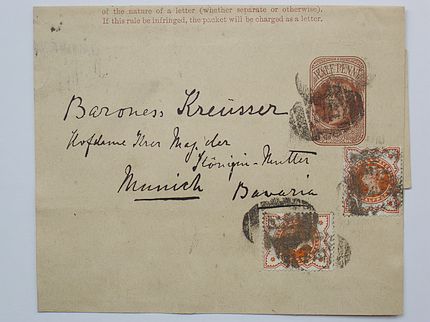 of the nature of a letter (whether separate or otherwise).
If this rule be infringed, the packet will be charged as a letter.
HALFPENNY
Baroness Kreüsser
Hofdame Ihrer Maj. der
Königin-Mutter
Munich Bavaria